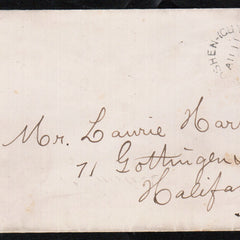 Mr. Laurie Har
71 Gottingen
Halifa